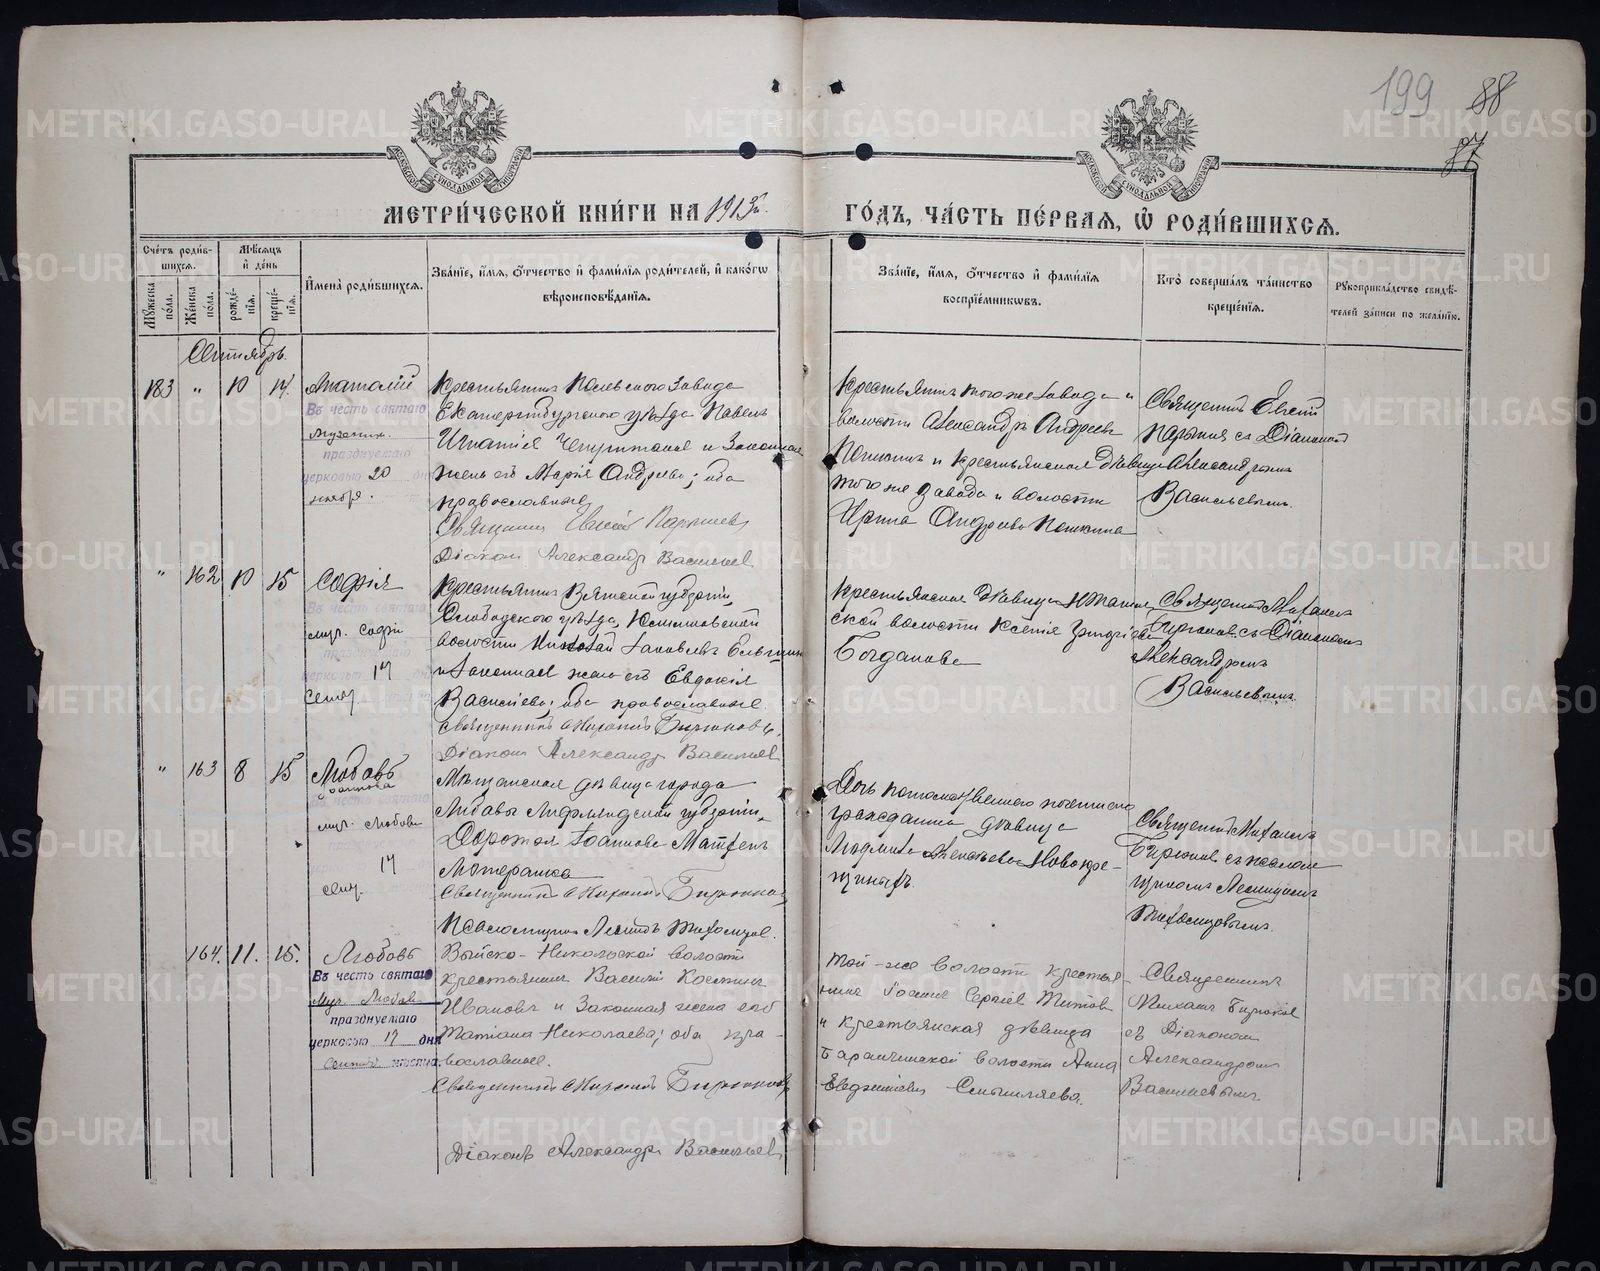 199 88
87
МЕТРИЧЕСКОЙ КНИГИ НА 1913й
ГОДЪ, ЧАСТЬ ПЕРВАЯ, Ѿ РОДИВШИХСЯ.
Счетъ родив-
шихся.
Мужеска пола.
Женска пола.
Мѣсяцъ и день
рожденія.
крещенія.
Имена родившихся.
Званіе, имя, отчество и фамилія родителей, и какогѡ
вѣроисповѣданія.
Званіе, имя, отчество и фамилія
воспріемниковъ.
Кто совершалъ таинство
крещенія.
Рукоприкладство свидѣ-
телей записи по желанію.
Сентябрь.
183 " 10 14. Анатолій
Въ честь святаго
мученик.
празднуемаго
церковью 20 дня
ноября.
Крестьянинъ Полевского завода
Екатеринбургскаго уѣзда Павелъ
Игнатіев и законная
жена его Марія Андреева; оба
православные
Священникъ Евгеній
Діаконъ Александръ Васильевъ
Крестьянинъ того же завода и
волости Александръ Андреевъ
и крестьянская дѣвица
того же завода и волости
Ирина Андреева
Священникъ Евгеній
съ Діакономъ
Александромъ
Васильевымъ.
" 162 10 15 Софія
Въ честь святаго
муч. Софіи
празднуемаго
17
сент.
Крестьянинъ Вятской губерніи,
Слободского уѣзда,
волости Николай Іаковлевъ
и законная жена его Евдокія
Васильева; оба православные.
Священникъ Михаилъ Бирюковъ.
Діаконъ Александръ Васильевъ
Крестьянская дѣвица
ской волости Ксенія
Богданова
Священникъ Михаилъ
Бирюковъ съ Діакономъ
Александромъ
Васильевымъ.
" 163 8 15 Любовь
муч. Любови
17
сент.
Мѣщанская дѣвица города
Либавы Лифляндской губерніи,
Іоаннова
Священникъ Михаилъ Бирюковъ
Псаломщикъ Леонидъ Тихомировъ.
Дочь потомственнаго почетнаго
гражданина дѣвица
Людмила Алексѣева Новокре-
щиныхъ.
Священникъ Михаилъ
Бирюковъ съ псалом-
щикомъ Леонидомъ
Тихомировымъ.
164. 11. 15. Любовь
Въ честь святаго
Муч. Любови
празднуемаго
церковью 17 дня
Сентяб. мѣсяца.
Выйско-Никольской волости
крестьянинъ Василій
Ивановъ и законная жена его
Татіана Николаева; оба пра-
вославные.
Священникъ Михаилъ Бирюковъ
Діаконъ Александръ Васильевъ
Той-же волости крестья-
нинъ Іоаннъ Сергіевъ Титовъ
и крестьянская дѣвица
Баранчинской волости Анна
Евдокимова Смышляева.
Священникъ
Михаилъ Бирюковъ
съ Діакономъ
Александромъ
Васильевымъ
METRIKI.GASO-URAL.RU